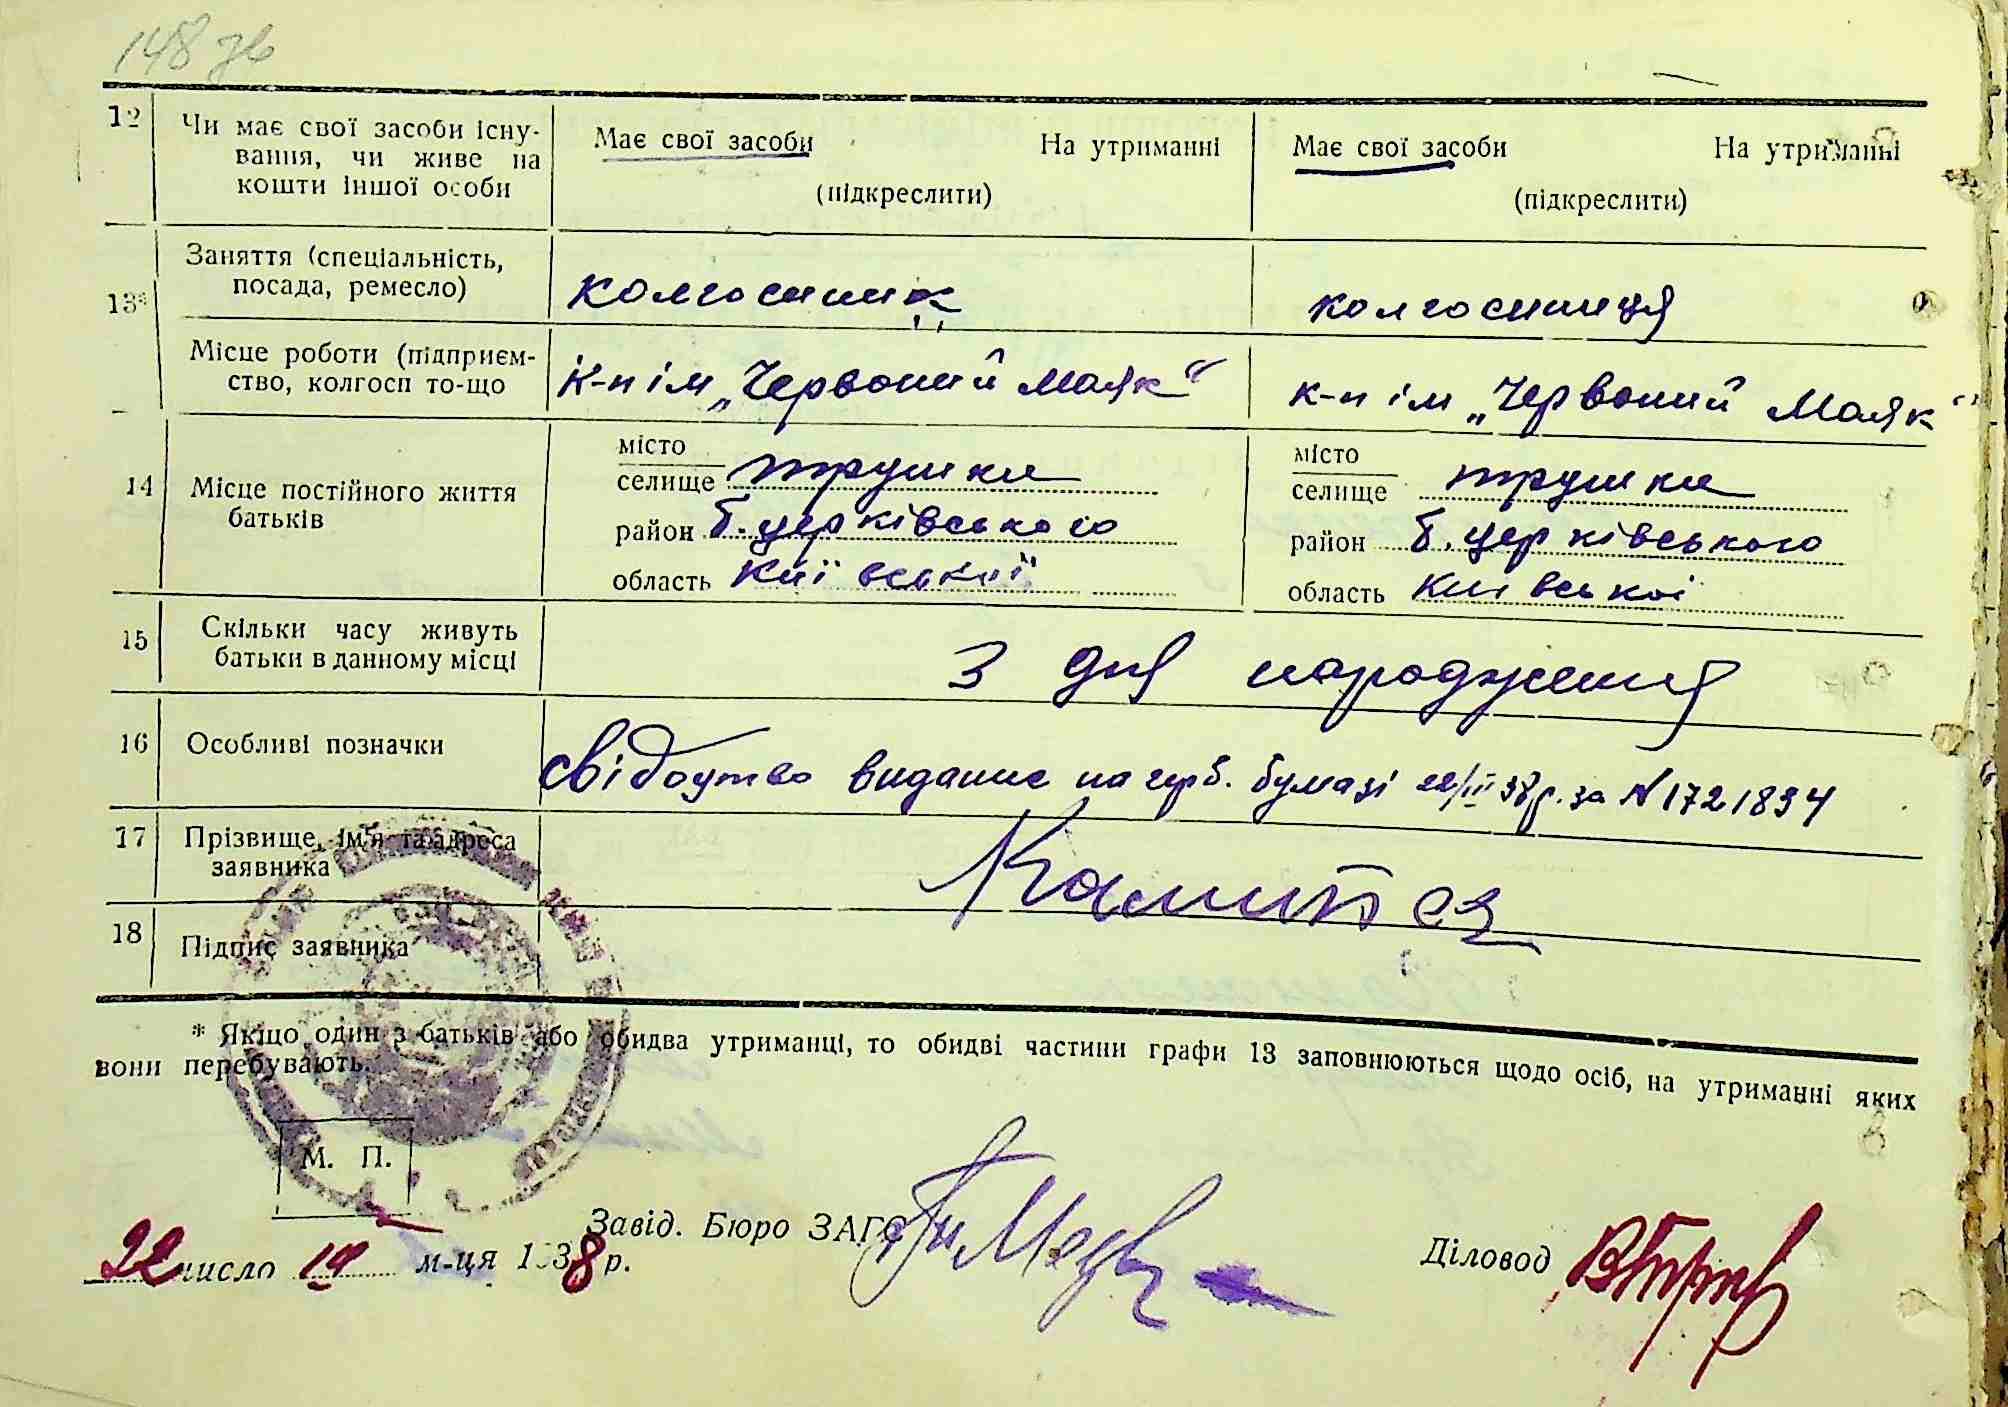 148 зв
12 Чи має свої засоби існу-
вання, чи живе на
кошти іншої особи
Має свої засоби На утриманні
(підкреслити)
Має свої засоби На утриманні
(підкреслити)
13* Заняття (спеціальність,
посада, ремесло)
колгоспник
колгоспниця
Місце роботи (підприєм-
ство, колгосп то-що
к-п ім „Червоний Маяк“
к-п ім „Червоний Маяк“
14 Місце постійного життя
батьків
місто
селище трушки
район б.церківського
область Київської
місто
селище трушки
район б.церківського
область Київської
15 Скільки часу живуть
батьки в данному місці
З дня народження
16 Особливі позначки
свідоцтво видане на герб. бумазі 22/III 38р. за N 1721894
17 Прізвище, ім'я та адреса
заявника
18 Підпис заявника
* Якщо один з батьків або обидва утриманці, то обидві частини графи 13 заповнюються щодо осіб, на утриманні яких
вони перебувають.
М. П.
22 число м-ця 1938 р.
Завід. Бюро ЗАГС
Діловод